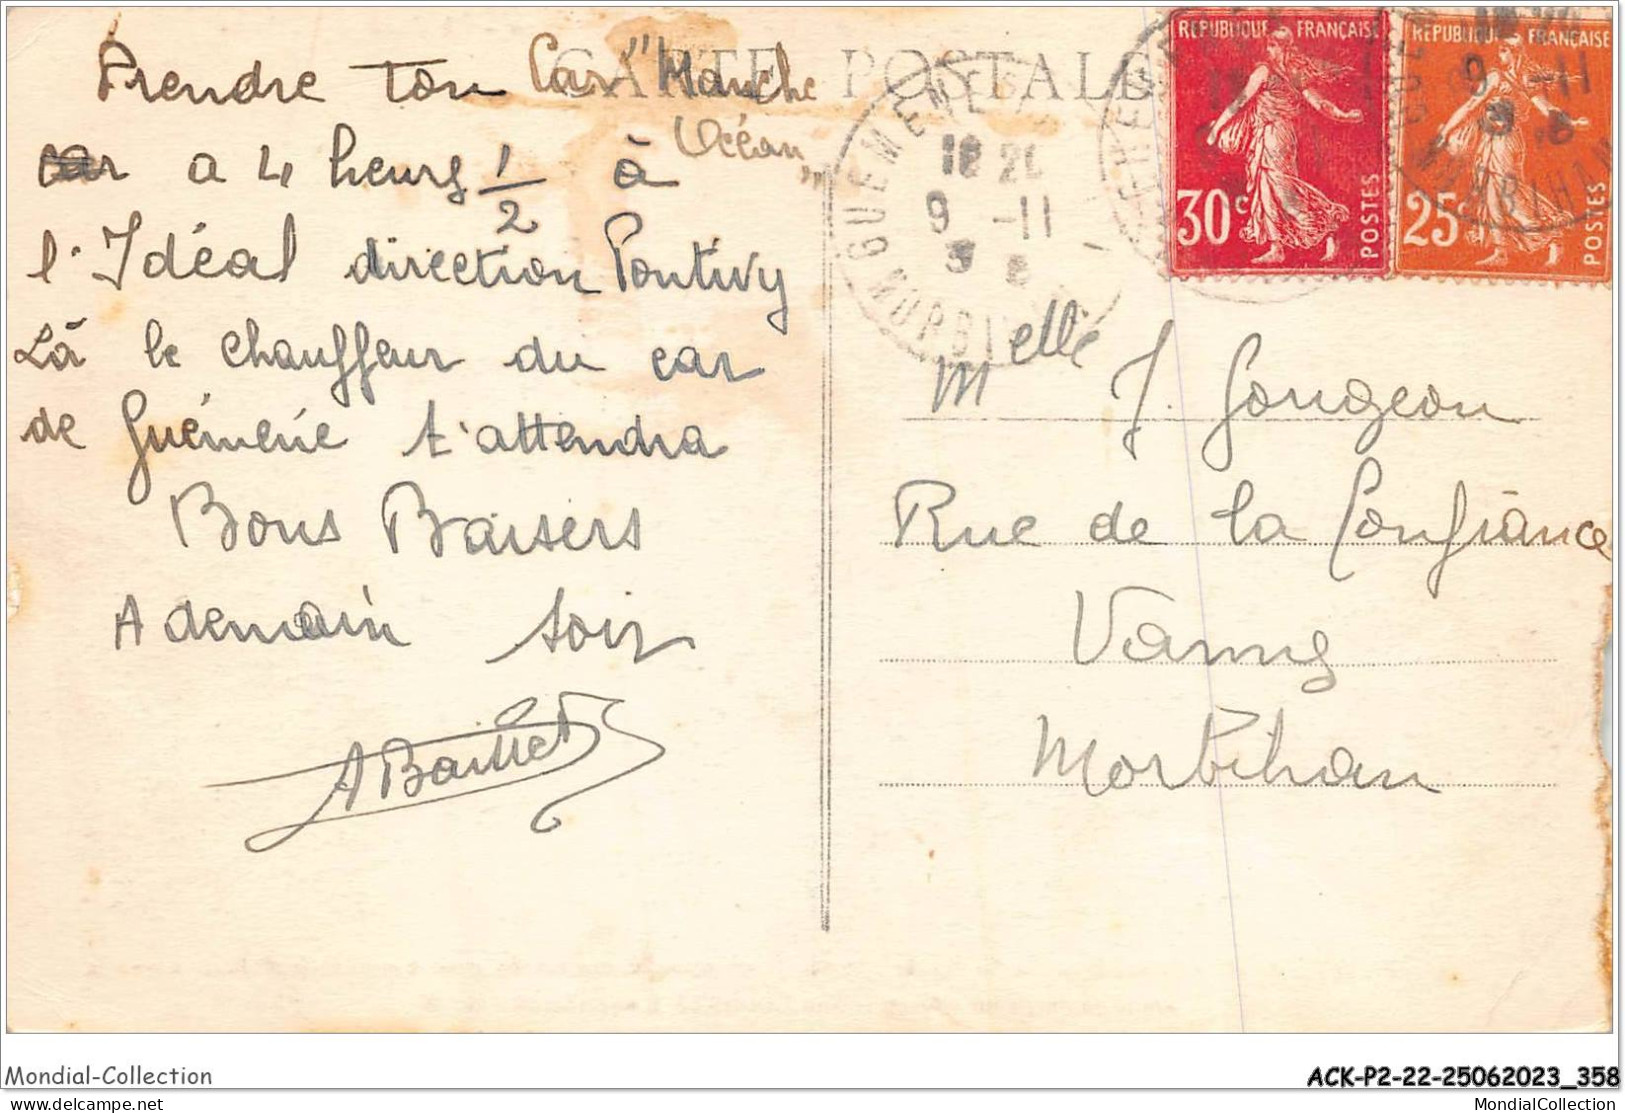 CARTE POSTALE
Prendre ton Car "Manche
Océan"
car a 4 heurs 1/2 à
l'Idéal direction Pontivy
Là le chauffeur du car
de Guéméné t'attendra
Bons Baisers
A demain soir
A Baillet
GUEMENE
MORBIHAN
18 20
9 -11
3
REPUBLIQUE FRANÇAISE
30c
POSTES
REPUBLIQUE FRANÇAISE
25c
POSTES
9 -11
MORBIHAN
Melle J. Gougeon
Rue de la Confiance
Vannes
Morbihan
Mondial-Collection
ACK-P2-22-25062023_358
delcampe.net
MondialCollection